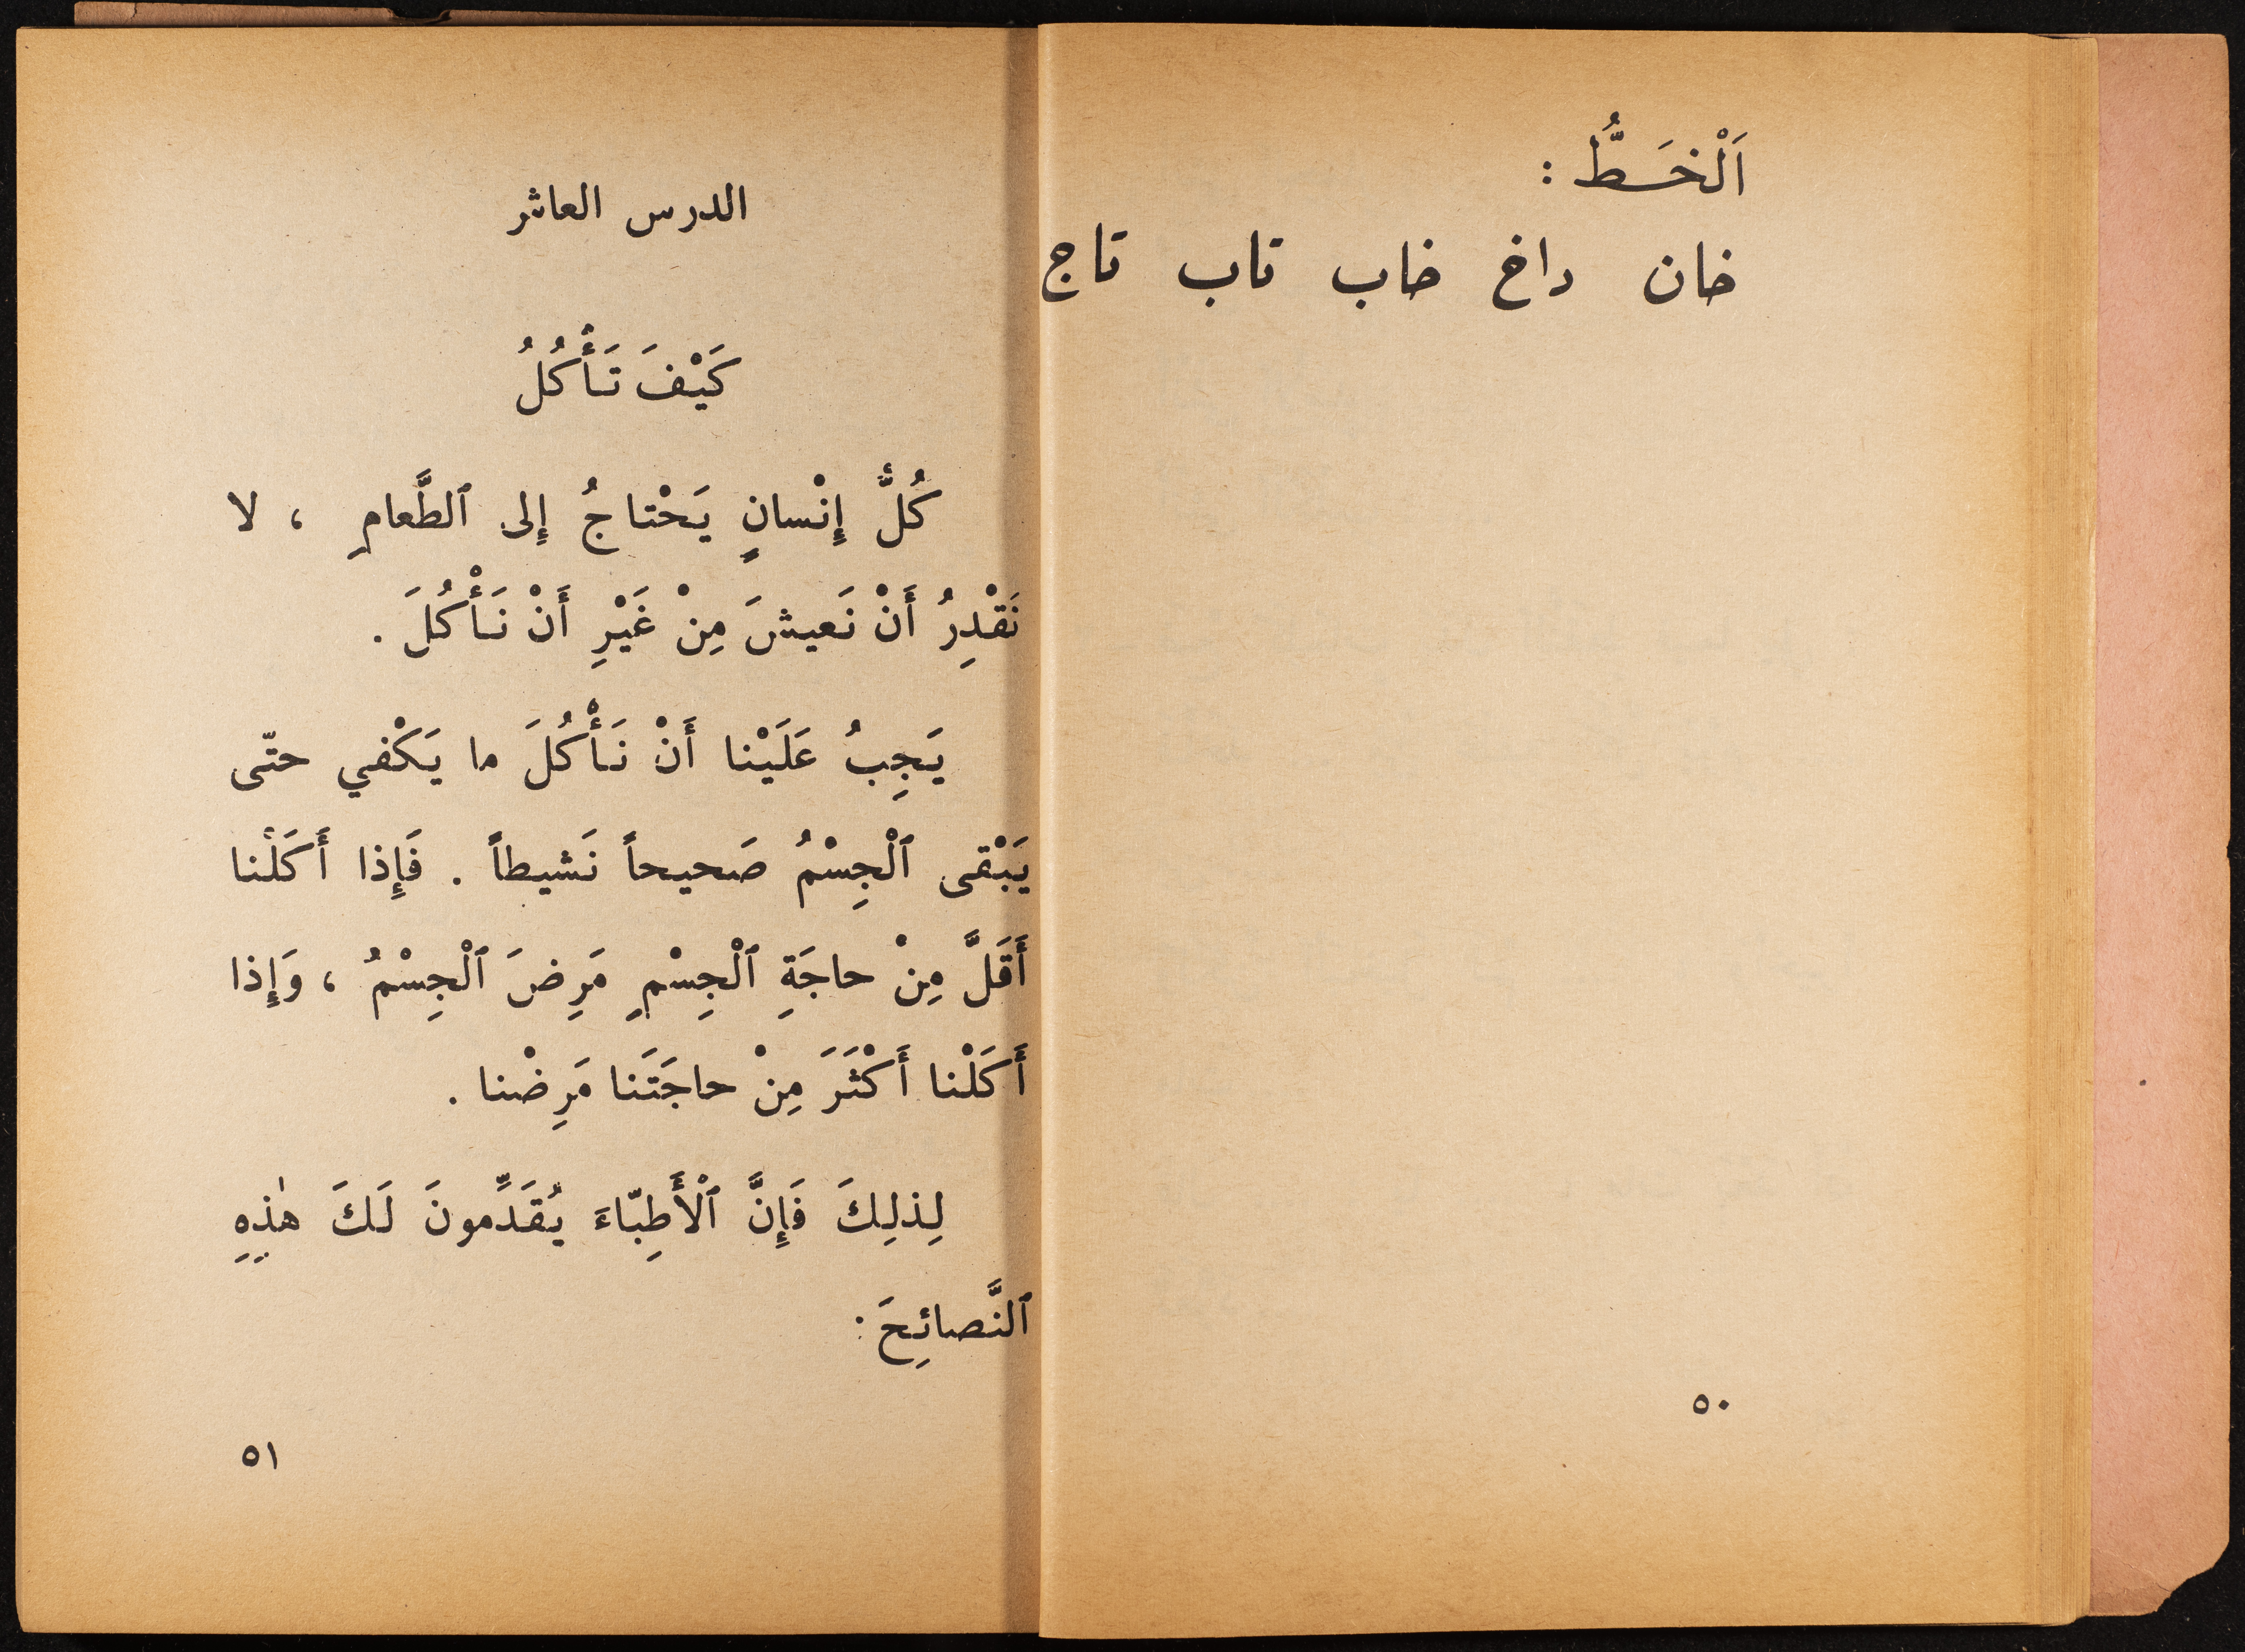 اَلْخَطُّ :
خان داخ خاب تاب تاج
٥٠
الدرس العاشر
كَيْفَ تَأْكُلُ
كُلُّ إِنْسانٍ يَحْتاجُ إِلى ٱلطَّعامِ ، لا
نَقْدِرُ أَنْ نَعيشَ مِنْ غَيْرِ أَنْ نَأْكُلَ .
يَجِبُ عَلَيْنا أَنْ نَأْكُلَ ما يَكْفي حتّى
يَبْقى ٱلْجِسْمُ صَحيحاً نَشيطاً . فَإِذا أَكَلْنا
أَقَلَّ مِنْ حاجَةِ ٱلْجِسْمِ مَرِضَ ٱلْجِسْمُ ، وَإِذا
أَكَلْنا أَكْثَرَ مِنْ حاجَتَنا مَرِضْنا .
لِذلِكَ فَإِنَّ ٱلْأَطِبّاءَ يُقَدِّمونَ لَكَ هٰذِهِ
ٱلنَّصائِحَ :
٥١